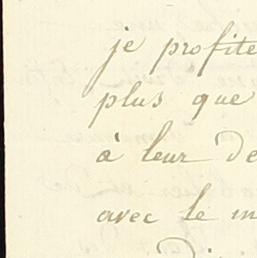 je profite
plus que
à leur de
avec le m
Di